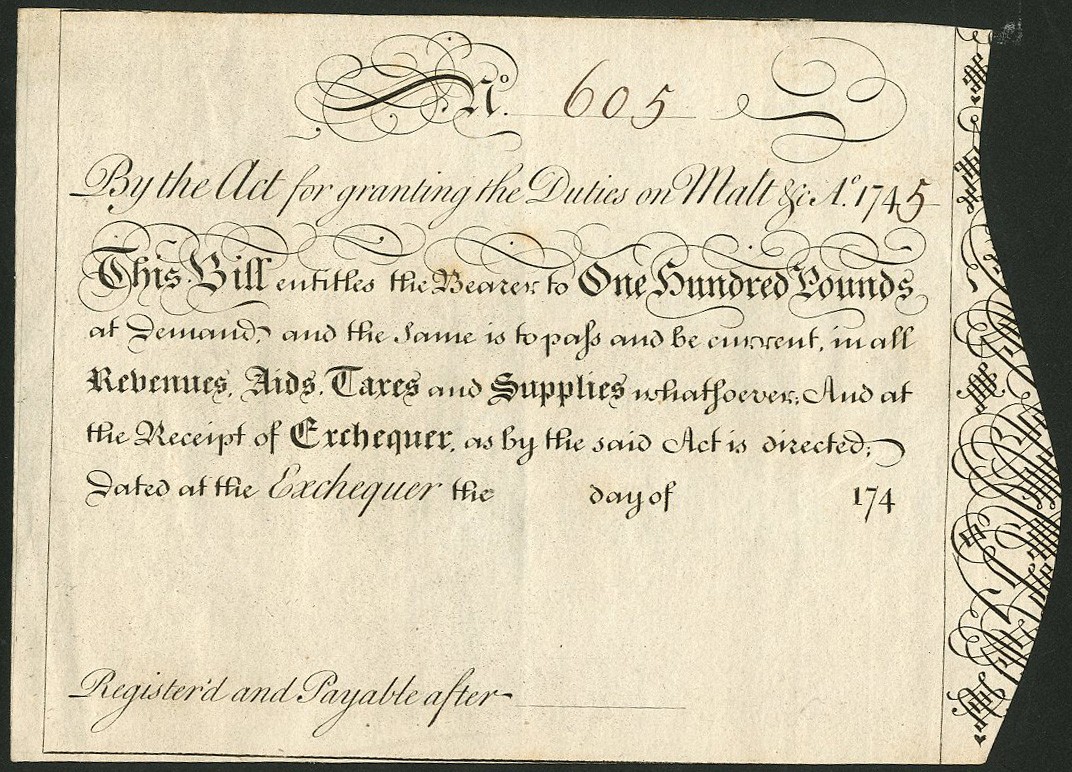 No. 605
By the Act for granting the Duties on Malt &c Ao. 1745
This Bill entitles the Bearer to One Hundred Pounds
at Demand, and the same is to paſs and be current, in all
Revenues, Aids, Taxes and Supplies whatſoever; And at
the Receipt of Exchequer, as by the said Act is directed;
Dated at the Exchequer the day of 174
Register'd and Payable after